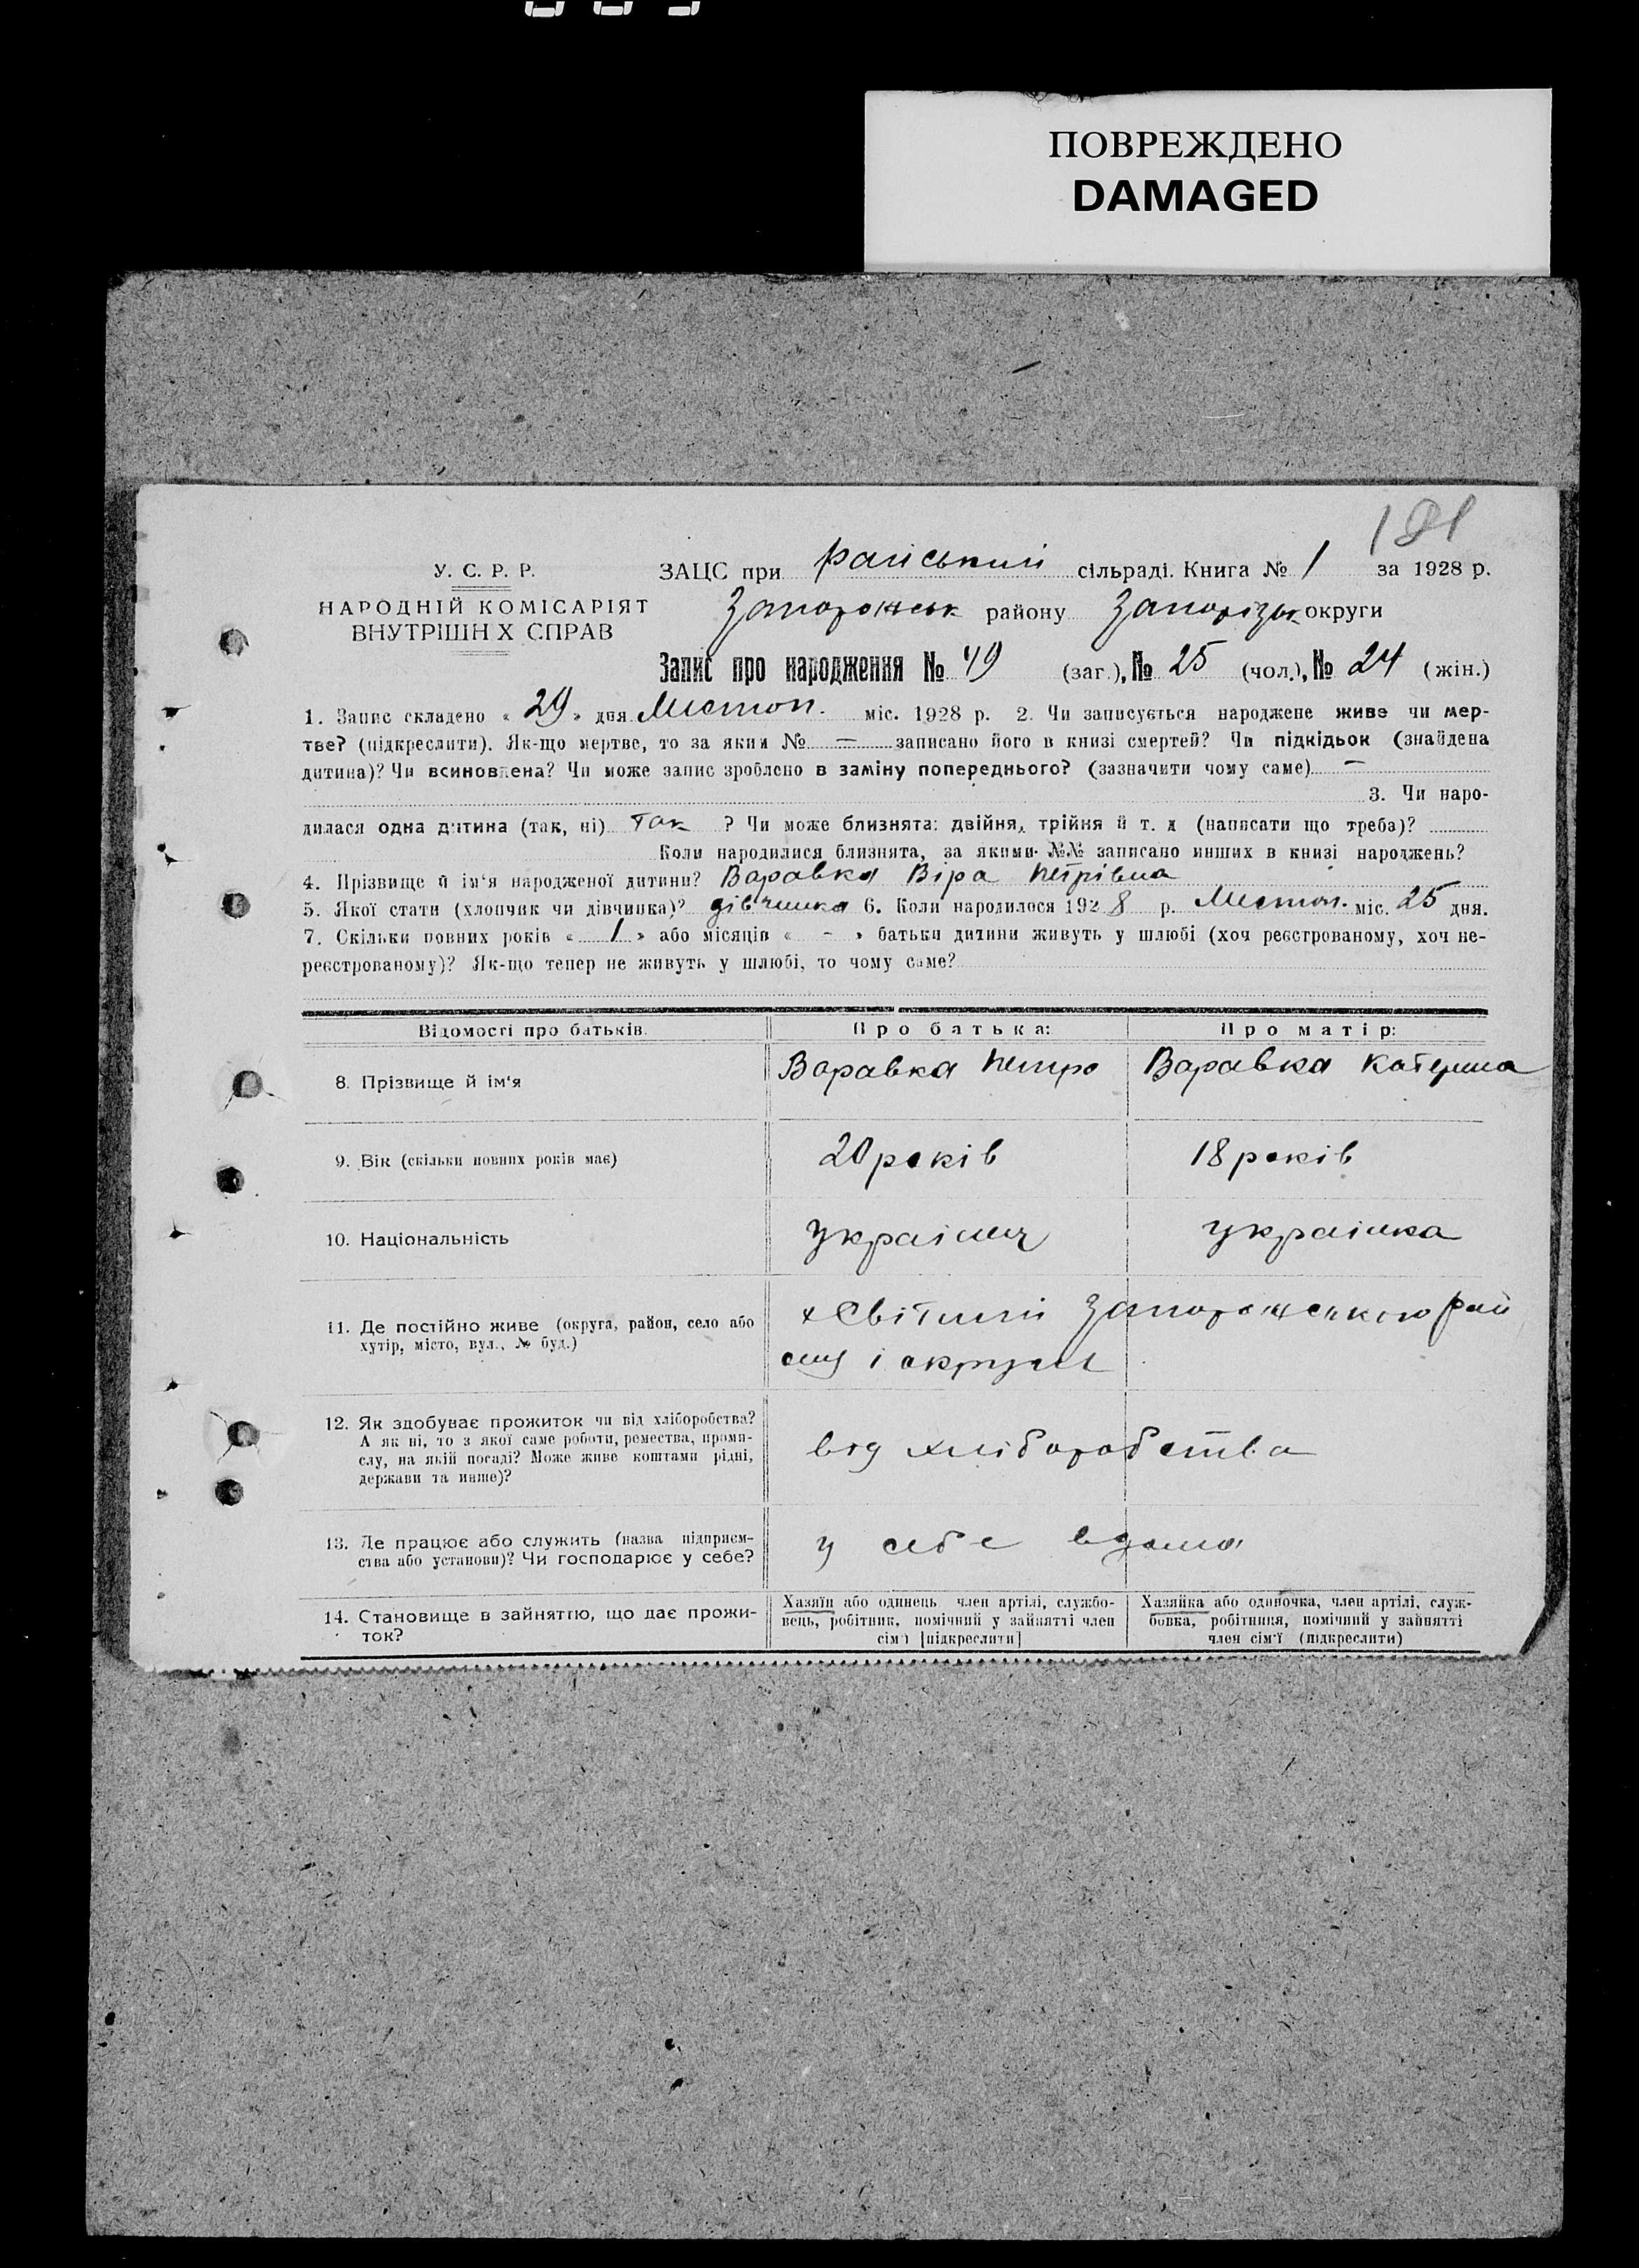 ПОВРЕЖДЕНО
DAMAGED
181
У. С. Р. Р.
НАРОДНІЙ КОМІСАРІЯТ
ВНУТРІШН Х СПРАВ
ЗАЦС при Райський сільраді. Книга № 1 за 1928 р.
Запорожськ району Запорізьк округи
Запис про народження № 49 (заг.), № 25 (чол.), № 24 (жін.)
1. Запис складено « 29 » дня Листоп. міс. 1928 р. 2. Чи записується народжене живе чи мер-
тве? (підкреслити). Як-що мертве, то за яким № — записано його в книзі смертей? Чи підкідьок (знайдена
дитина)? Чи всиновлена? Чи може запис зроблено в заміну попереднього? (зазначити чому саме) —
3. Чи наро-
дилася одна дитина (так, ні) Так ? Чи може близнята: двійня, трійня й т. д (написати що треба)?
Коли народилися близнята, за якими №№ записано инших в книзі народжень?
4. Прізвище й ім'я народженої дитини? Варавка Віра Петрівна
5. Якої стати (хлопчик чи дівчинка)? дівчинка 6. Коли народилося 1928 р. Листоп. міс. 25 дня.
7. Скільки повних років « 1 » або місяців « - » батьки дитини живуть у шлюбі (хоч реєстрованому, хоч не-
реєстрованому)? Як-що тепер не живуть у шлюбі, то чому саме?
Відомості про батьків. Про батька: Про матір:
8. Прізвище й ім'я Варавка Петро Варавка Катерина
9. Вік (скільки повних років має) 20 років 18 років
10. Національність українец українка
11. Де постійно живе (округа, район, село або
хутір, місто, вул., № буд.)
х Світлий Запорожського рай
ону і округи
12. Як здобуває прожиток чи від хліборобства?
А як ні, то з якої саме роботи, ремества, проми-
слу, на якій посаді? Може живе коштами рідні,
держави та инше)?
від хліборобства
13. Де працює або служить (назва підприєм-
ства або установи)? Чи господарює у себе?
у себе вдома
14. Становище в зайняттю, що дає прожи-
ток?
Хазяїн або одинець член артілі, службо-
вець, робітник, помічний у зайнятті член
сім'ї [підкреслити]
Хазяйка або одиночка, член артілі, служ-
бовка, робітниця, помічний у зайнятті
член сім'ї (підкреслити)